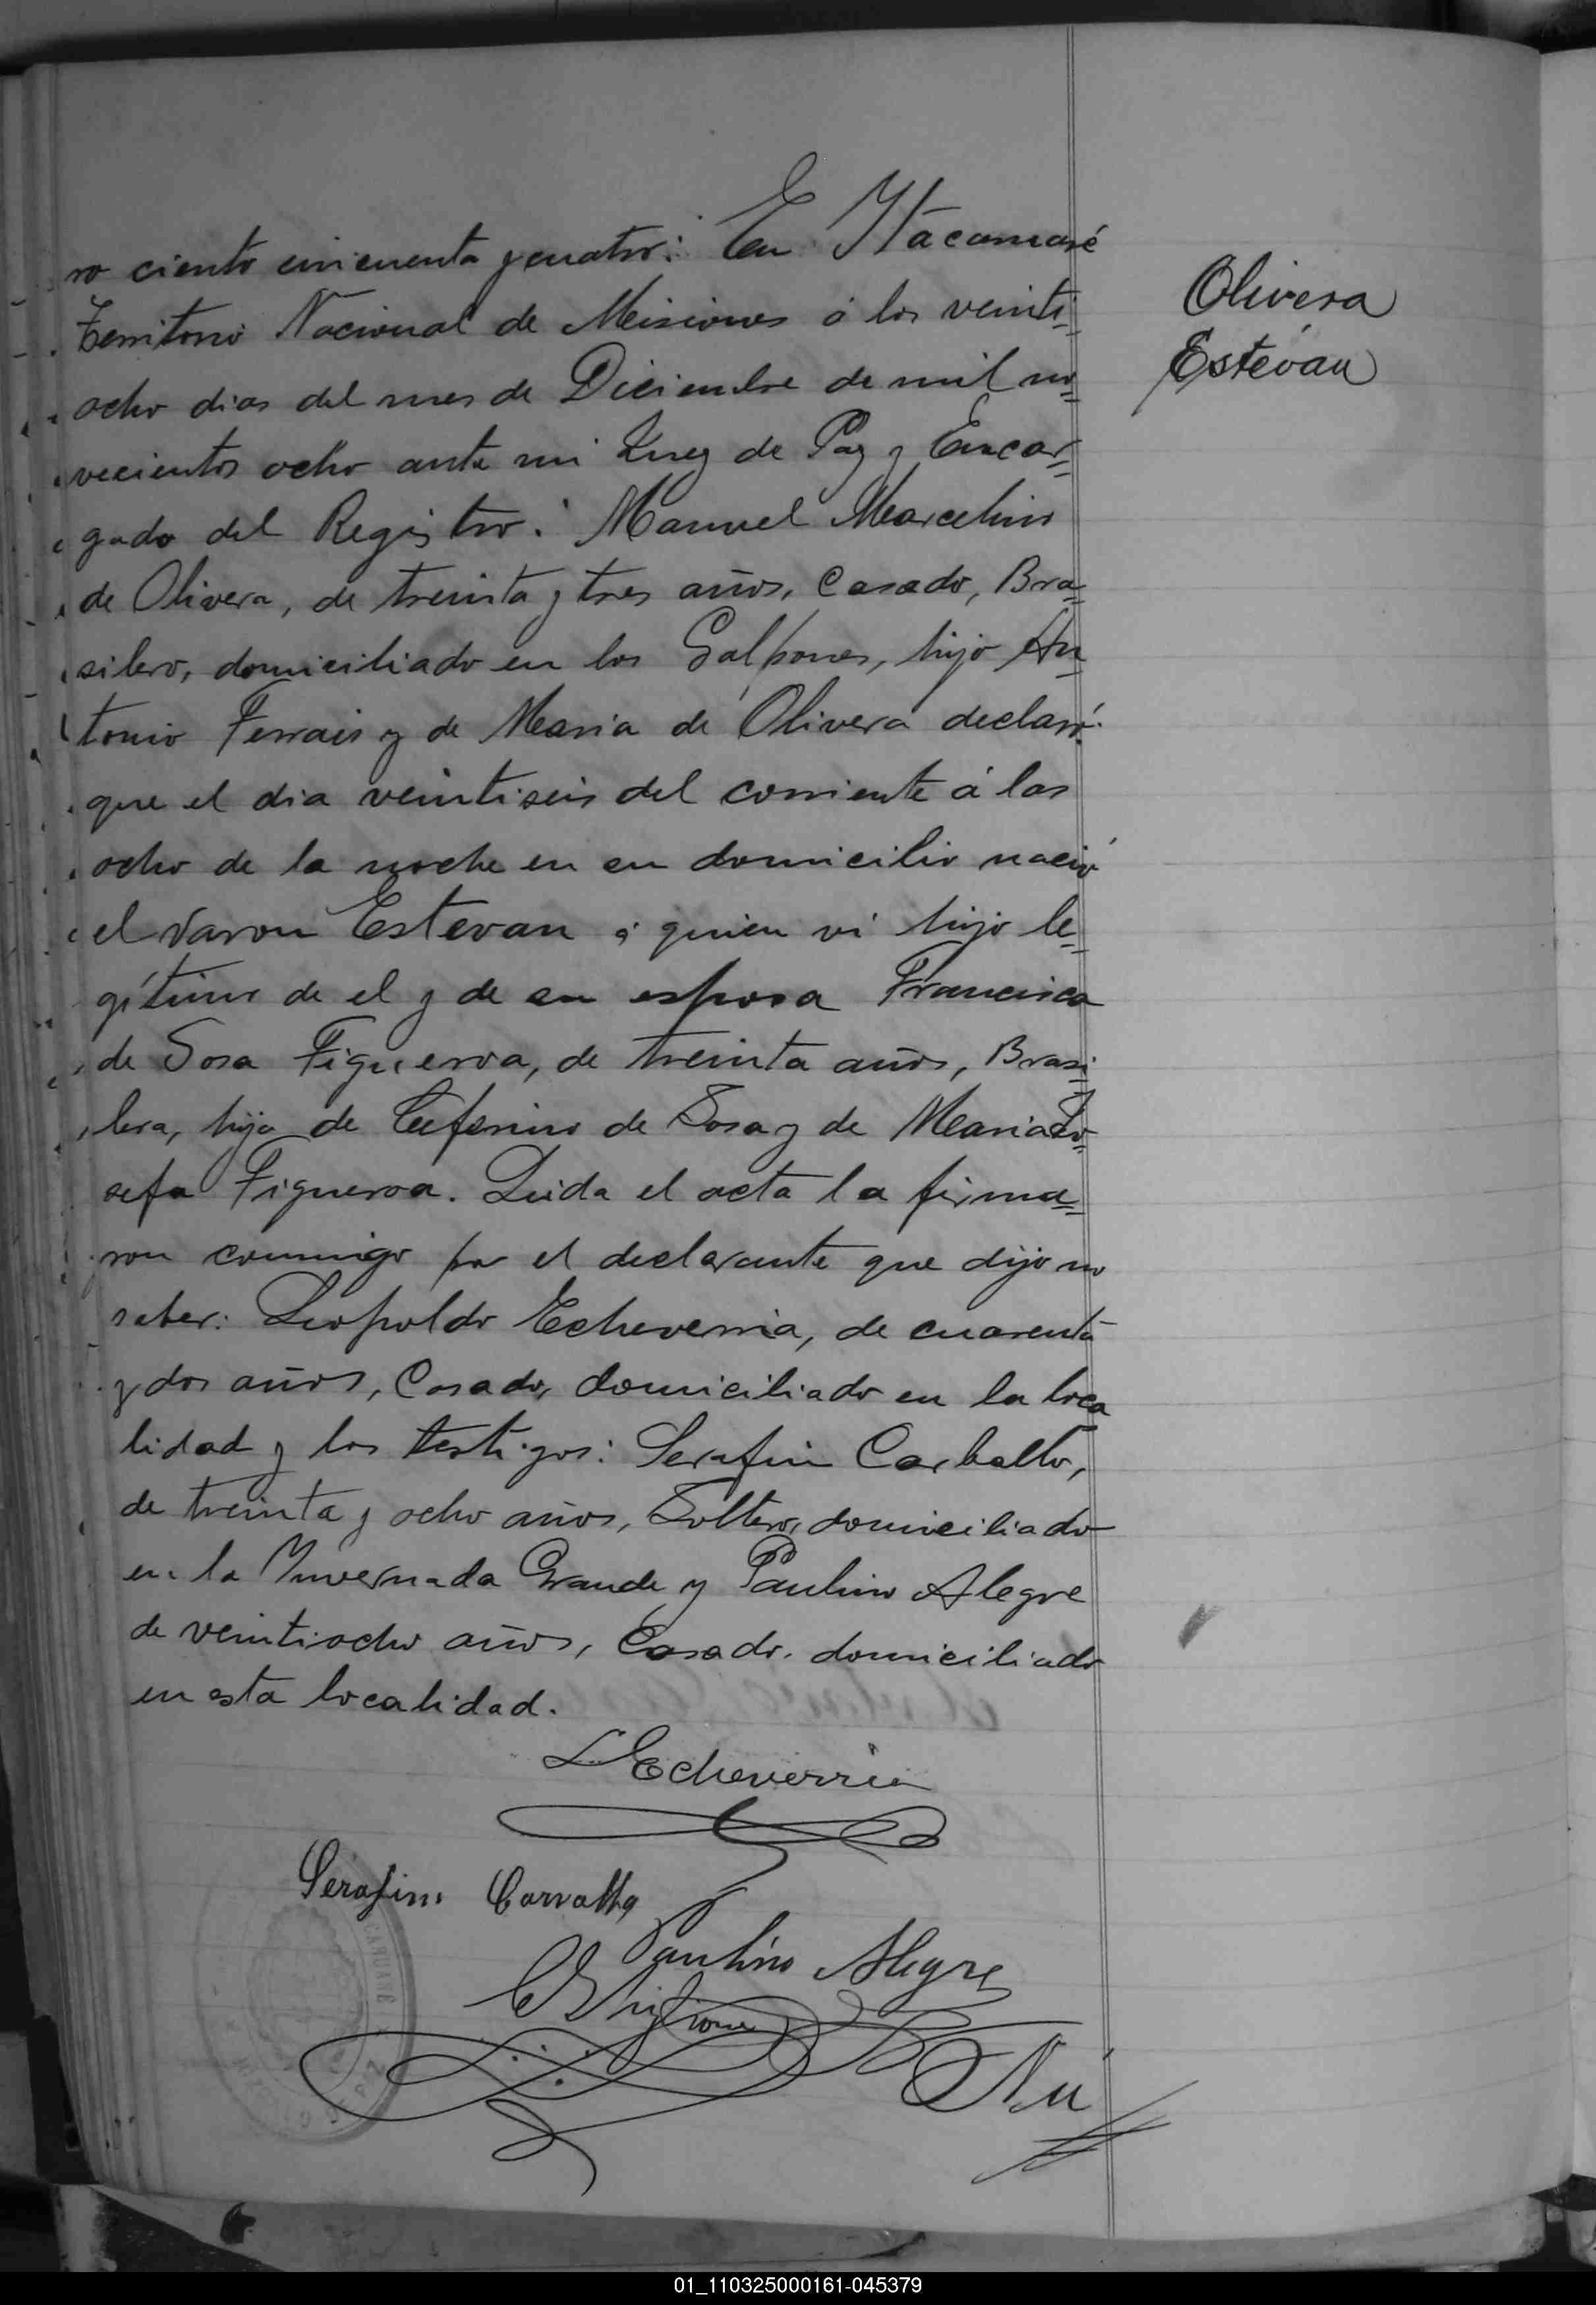 ro ciento cincuenta y cuatro: En Itacaruaré
Territorio Nacional de Misiones á los veinti
ocho dias del mes de Diciembre de mil no=
vecientos ocho ante mi Juez de Paz y Encar=
gado del Registro: Manuel Marcelino
de Olivera, de treinta y tres años, Casado, Bra=
silero, domiciliado en los Galpones, hijo An=
tonio Ferrais y de Maria de Olivera declaró:
que el dia veintiseis del corriente á las
ocho de la noche en su domicilio nació
el varon Estevan á quien vi hijo le=
gítimo de el y de su esposa Francisca
de Sosa Figueroa, de treinta años, Brasi=
lera, hija de Ceferino de Sosa y de Maria Jo=
sefa Figueroa. Leida el acta la firma=
ron conmigo por el declarante que dijo no
saber: Leopoldo Echeverria, de cuarenta
y dos años, Casado, domiciliado en la loca
lidad y los testigos: Serafin Carballo,
de treinta y ocho años, Soltero, domiciliado
en la Invernada Grande y Paulino Alegre
de veintiocho años, Casado, domiciliado
en esta localidad.
Olivera
Estevan
L Echeverria
Serafim Carvalho
Paulino Alegre
01_110325000161-045379